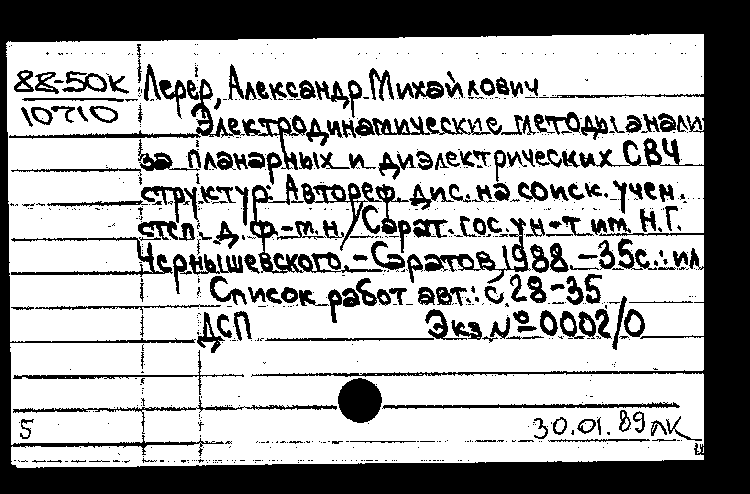 88-50к Лерер, Александр Михайлович
10710
Электродинамические методы анали
за планарных и диэлектрических СВЧ
структур: Автореф. дис. на соиск. учен.
степ. д. ф.-м.н./Сарат. гос. ун-т им. Н.Г.
Чернышевского.-Саратов, 1988.-35с.: ил
Список работ авт.: с. 28-35
ДСП Экз. №-0002/0
5 30.01.89 лк